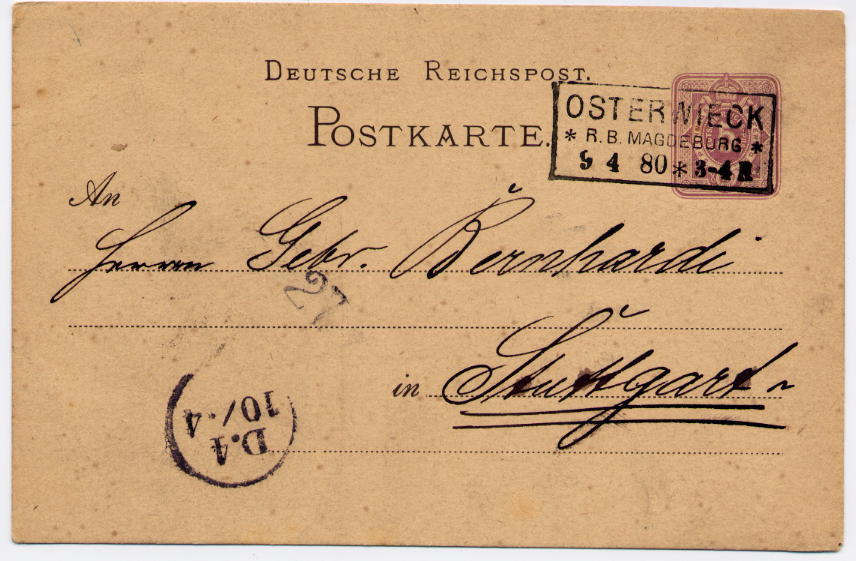 DEUTSCHE REICHSPOST.
POSTKARTE.
OSTERWIECK
* R.B. MAGDEBURG *
9 4 80 * 3-4 N
An
Herren Gebr. Bernhardi
27
in Stuttgart
D.4
10/.4